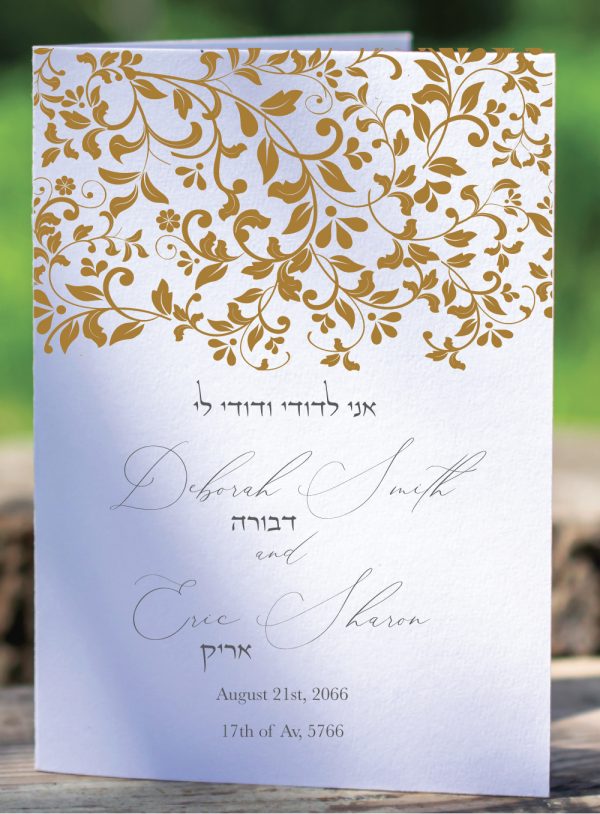 אני לדודי ודודי לי
Deborah Smith
דבורה
and
Eric Sharon
אריק
August 21st, 2066
17th of Av, 5766